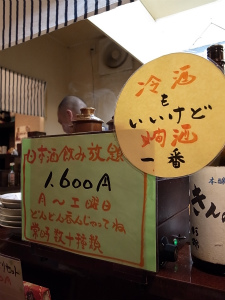 冷酒
も
いいけど
燗酒
一番
日本酒飲み放題
1,600A
月〜土曜日
どんどん呑んじゃってね
常時数十種類
本醸